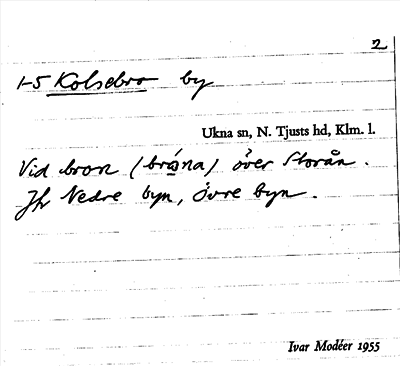 2
1-5 Kolsebro by
Ukna sn, N. Tjusts hd, Klm. l.
Vid bron (bróna) över Storån.
Jfr Nedre byn, övre byn.
Ivar Modéer 1955